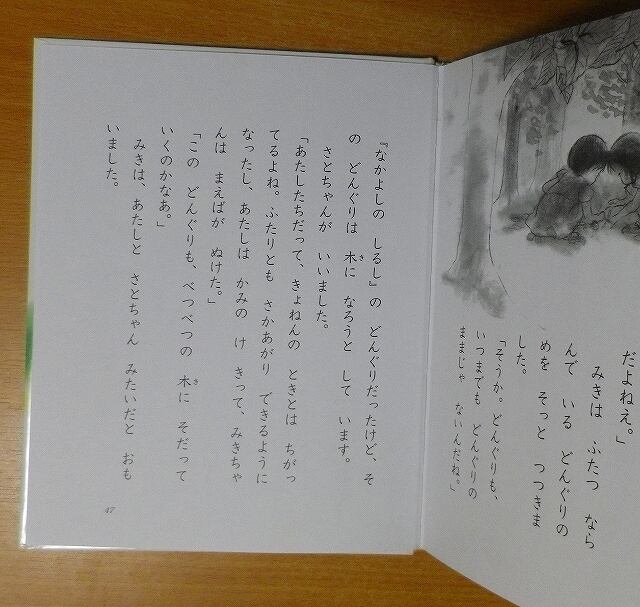 だよねえ。」
みきは ふたつ なら
んで いる どんぐりの
めを そっと つつきま
した。
「そうか。どんぐりも、
いつまでも どんぐりの
ままじゃ ないんだね。」
『なかよしの しるし』の どんぐりだったけど、そ
の どんぐりは 木に なろうと して います。
き
さとちゃんが いいました。
「あたしたちだって、きょねんの ときとは ちがっ
てるよね。ふたりとも さかあがり できるように
なったし、あたしは かみの け きって、みきちゃ
んは まえばが ぬけた。」
「この どんぐりも、べつべつの 木に そだって
き
いくのかなあ。」
みきは、あたしと さとちゃん みたいだと おも
いました。
47